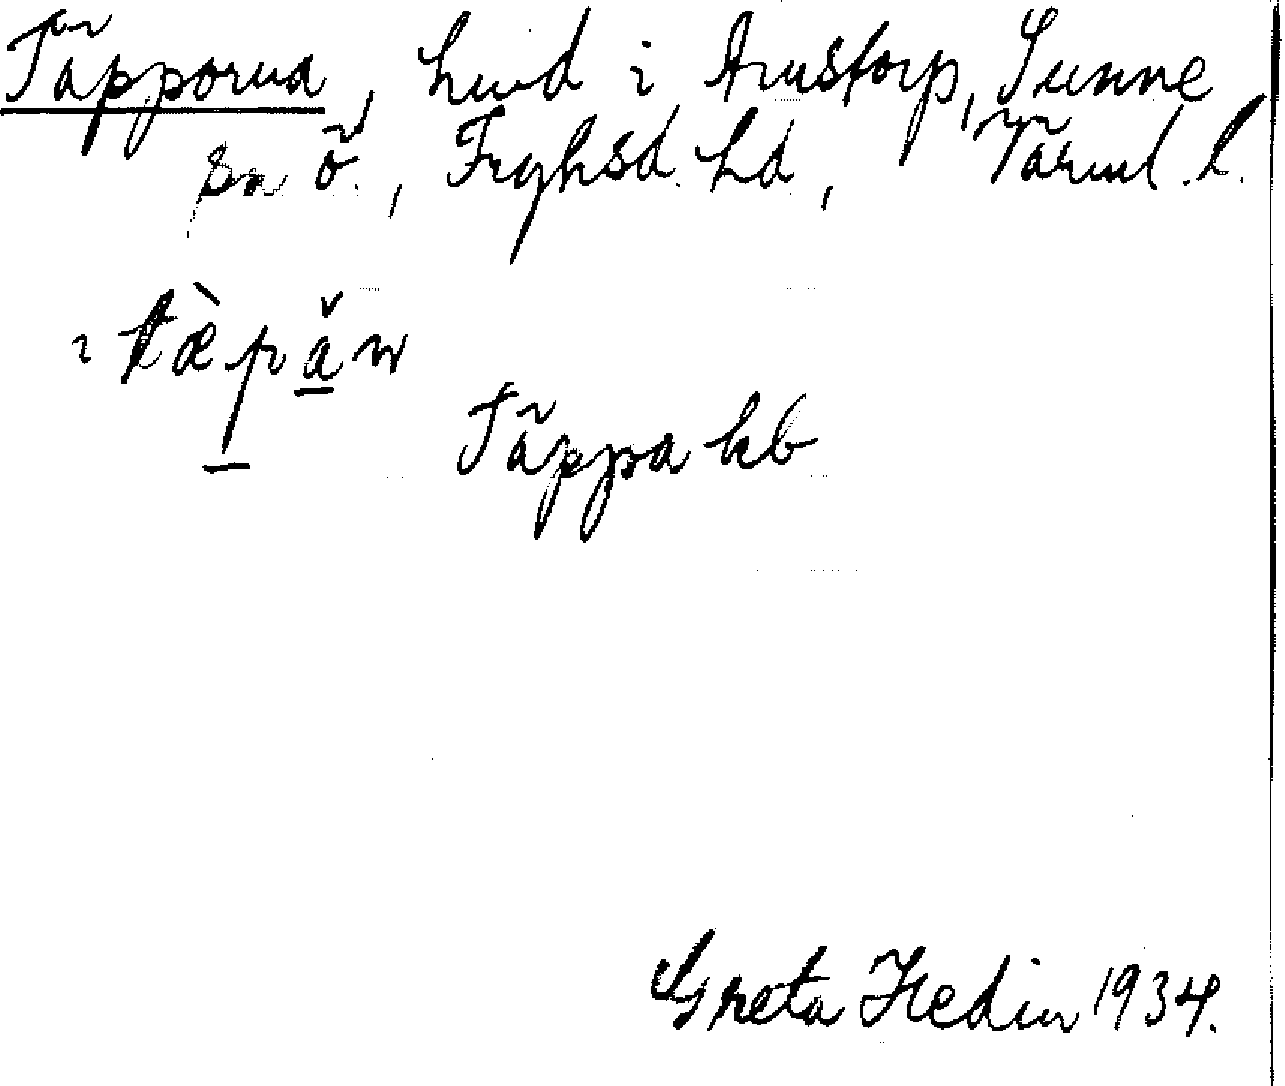 Täpporna, hmd i Arnstorp, Sunne
sn ö., Fryksd. hd, Värml. l.
i tæ̀pǎ̲n
Täppa kb
Greta Hedin 1934.